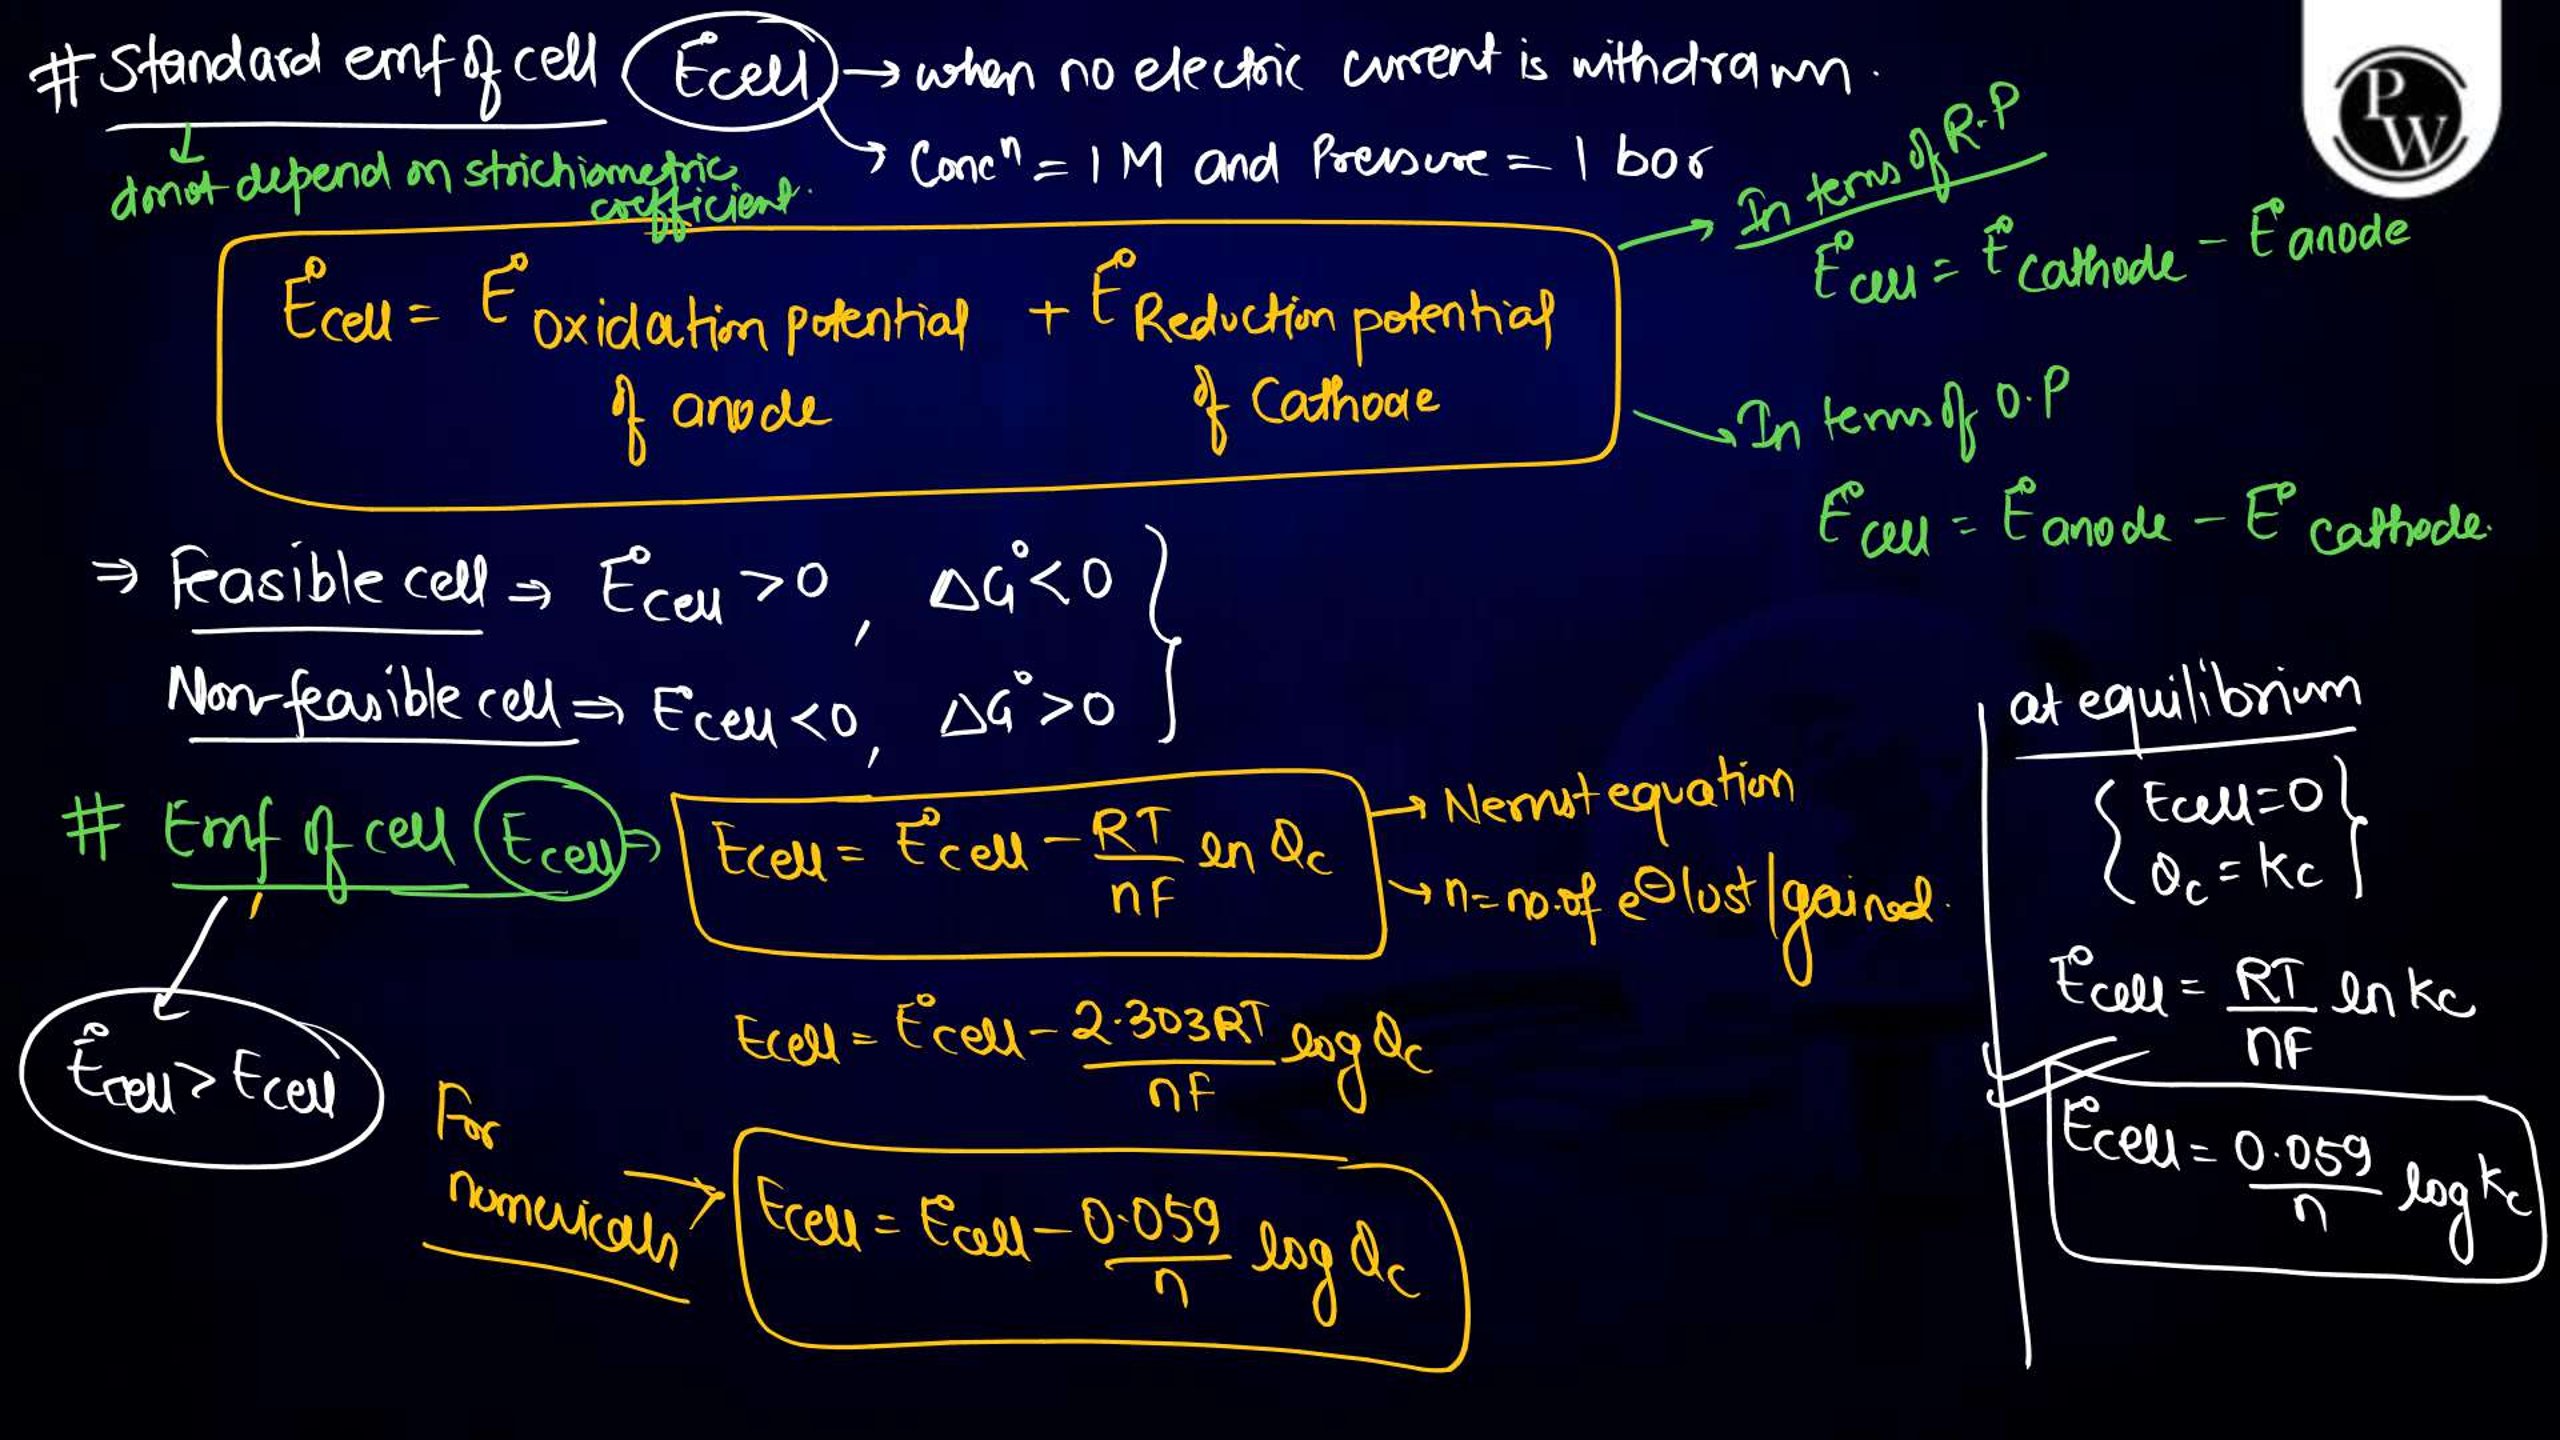 # Standard emf of cell E°cell → when no electric current is withdrawn.
→ Concⁿ = 1 M and Pressure = 1 bar
↓ donot depend on strichiometric
coefficient.
E°cell = E° oxidation potential of anode + E° Reduction potential of Cathode
→ In terms of R.P
E°cell = E°cathode - E°anode
→ In terms of O.P
E°cell = E°anode - E°cathode.
⇒ Feasible cell ⇒ E°cell > 0, ΔG° < 0
Non-feasible cell ⇒ Ecell < 0, ΔG° > 0
# Emf of cell Ecell ⇒ Ecell = E°cell - RT/nF ln Qc
→ Nernst equation
→ n = no. of e⊖ lost/gained.
E°cell > Ecell
Ecell = E°cell - 2.303RT/nF log Qc
For
numericals → Ecell = E°cell - 0.059/n log Qc
at equilibrium
{ Ecell = 0 }
{ Qc = Kc }
E°cell = RT/nF ln Kc
E°cell = 0.059/n log Kc
PW